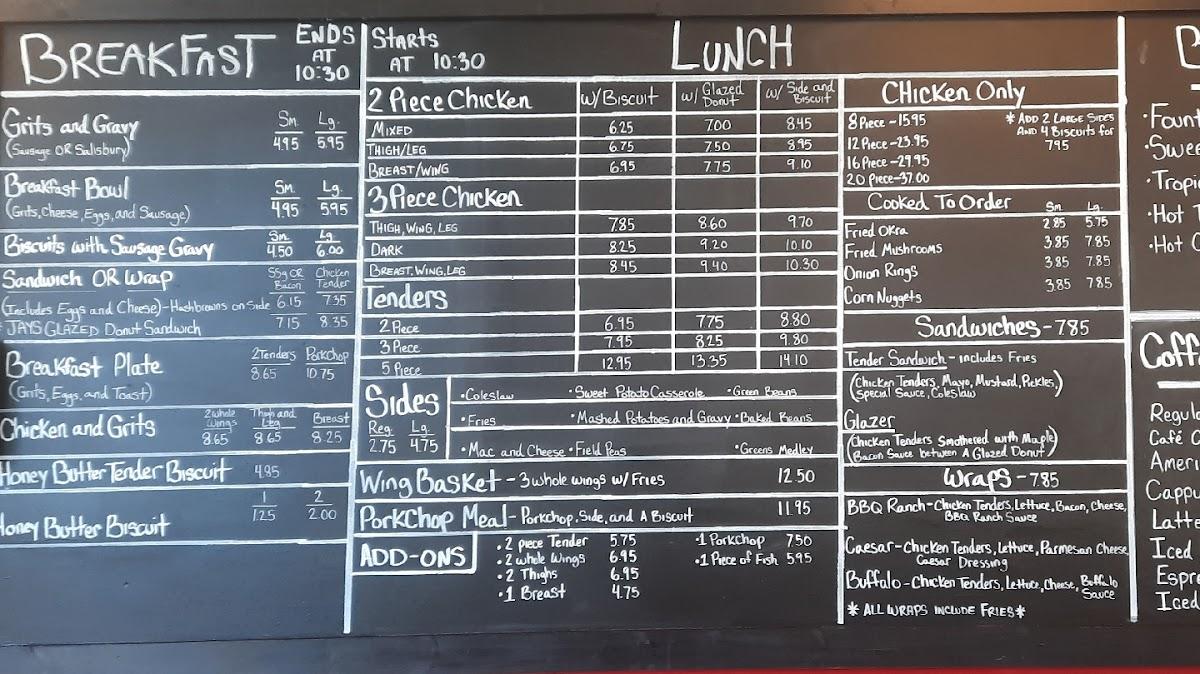 BREAKFAST
ENDS
AT
10:30
Grits and Gravy
(Sausage OR Salisbury)
Sm. Lg.
4.95 5.95
Breakfast Bowl
(Grits, Cheese, Eggs, and Sausage)
Sm. Lg.
4.95 5.95
Biscuits with Sausage Gravy
Sm. Lg.
4.50 6.00
Sandwich OR Wrap
SSg OR Bacon
Chicken Tender
(Includes Eggs and Cheese) - Hashbrowns on Side 6.15 7.35
JAYS GLAZED Donut Sandwich 7.15 8.35
Breakfast Plate
(Grits, Eggs, and Toast)
2Tenders Porkchop
8.65 10.75
Chicken and Grits
2 whole Wings
Thigh and Leg
Breast
8.65 8.65 8.25
Honey Butter Tender Biscuit 4.85
Honey Butter Biscuit
1 2
1.25 2.00
Starts
AT 10:30
LUNCH
2 Piece Chicken w/ Biscuit w/ Glazed Donut w/ Side and Biscuit
Mixed 6.25 7.00 8.45
THIGH/LEG 6.75 7.50 8.95
BREAST/WING 6.95 7.75 9.10
3 Piece Chicken
THIGH, WING, LEG 7.85 8.60 9.70
DARK 8.25 9.20 10.10
BREAST, WING, LEG 8.45 9.40 10.30
Tenders
2 Piece 6.95 7.75 8.80
3 Piece 7.95 8.25 9.80
5 Piece 12.95 13.35 14.10
Sides
Reg. Lg.
2.75 4.75
•Coleslaw •Sweet Potato Casserole •Green Beans
•Fries •Mashed Potatoes and Gravy •Baked Beans
•Mac and Cheese •Field Peas •Greens Medley
Wing Basket - 3 whole wings w/ Fries 12.50
PorkChop Meal - Porkchop, Side, and A Biscuit 11.95
ADD-ONS
•2 piece Tender 5.75
•2 whole Wings 6.95
•2 Thighs 6.95
•1 Breast 4.75
•1 Porkchop 7.50
•1 Piece of Fish 5.95
CHicken Only
8 Piece - 15.95
12 Piece - 23.95
16 Piece - 29.95
20 Piece - 37.00
* ADD 2 LARGE SIDES
AND 4 BISCUITS for
7.95
Cooked To Order Sm. Lg.
Fried Okra 2.85 5.75
Fried Mushrooms 3.85 7.85
Onion Rings 3.85 7.85
Corn Nuggets 3.85 7.85
Sandwiches - 7.85
Tender Sandwich - includes Fries
(Chicken Tenders, Mayo, Mustard, Pickles,
Special Sauce, Coleslaw)
Glazer
(Chicken Tenders Smothered with Maple
Bacon Sauce between A Glazed Donut)
Wraps - 7.85
BBQ Ranch - Chicken Tenders, Lettuce, Bacon, Cheese,
BBQ Ranch Sauce
Caesar - Chicken Tenders, Lettuce, Parmesan Cheese,
Caesar Dressing
Buffalo - Chicken Tenders, Lettuce, Cheese, Buffalo
Sauce
* ALL WRAPS INCLUDE FRIES *
B
•Fount
•Swee
•Tropi
•Hot T
•Hot C
Coff
Regul
Café C
Ameri
Cappu
Latte
Iced
Espre
Iced